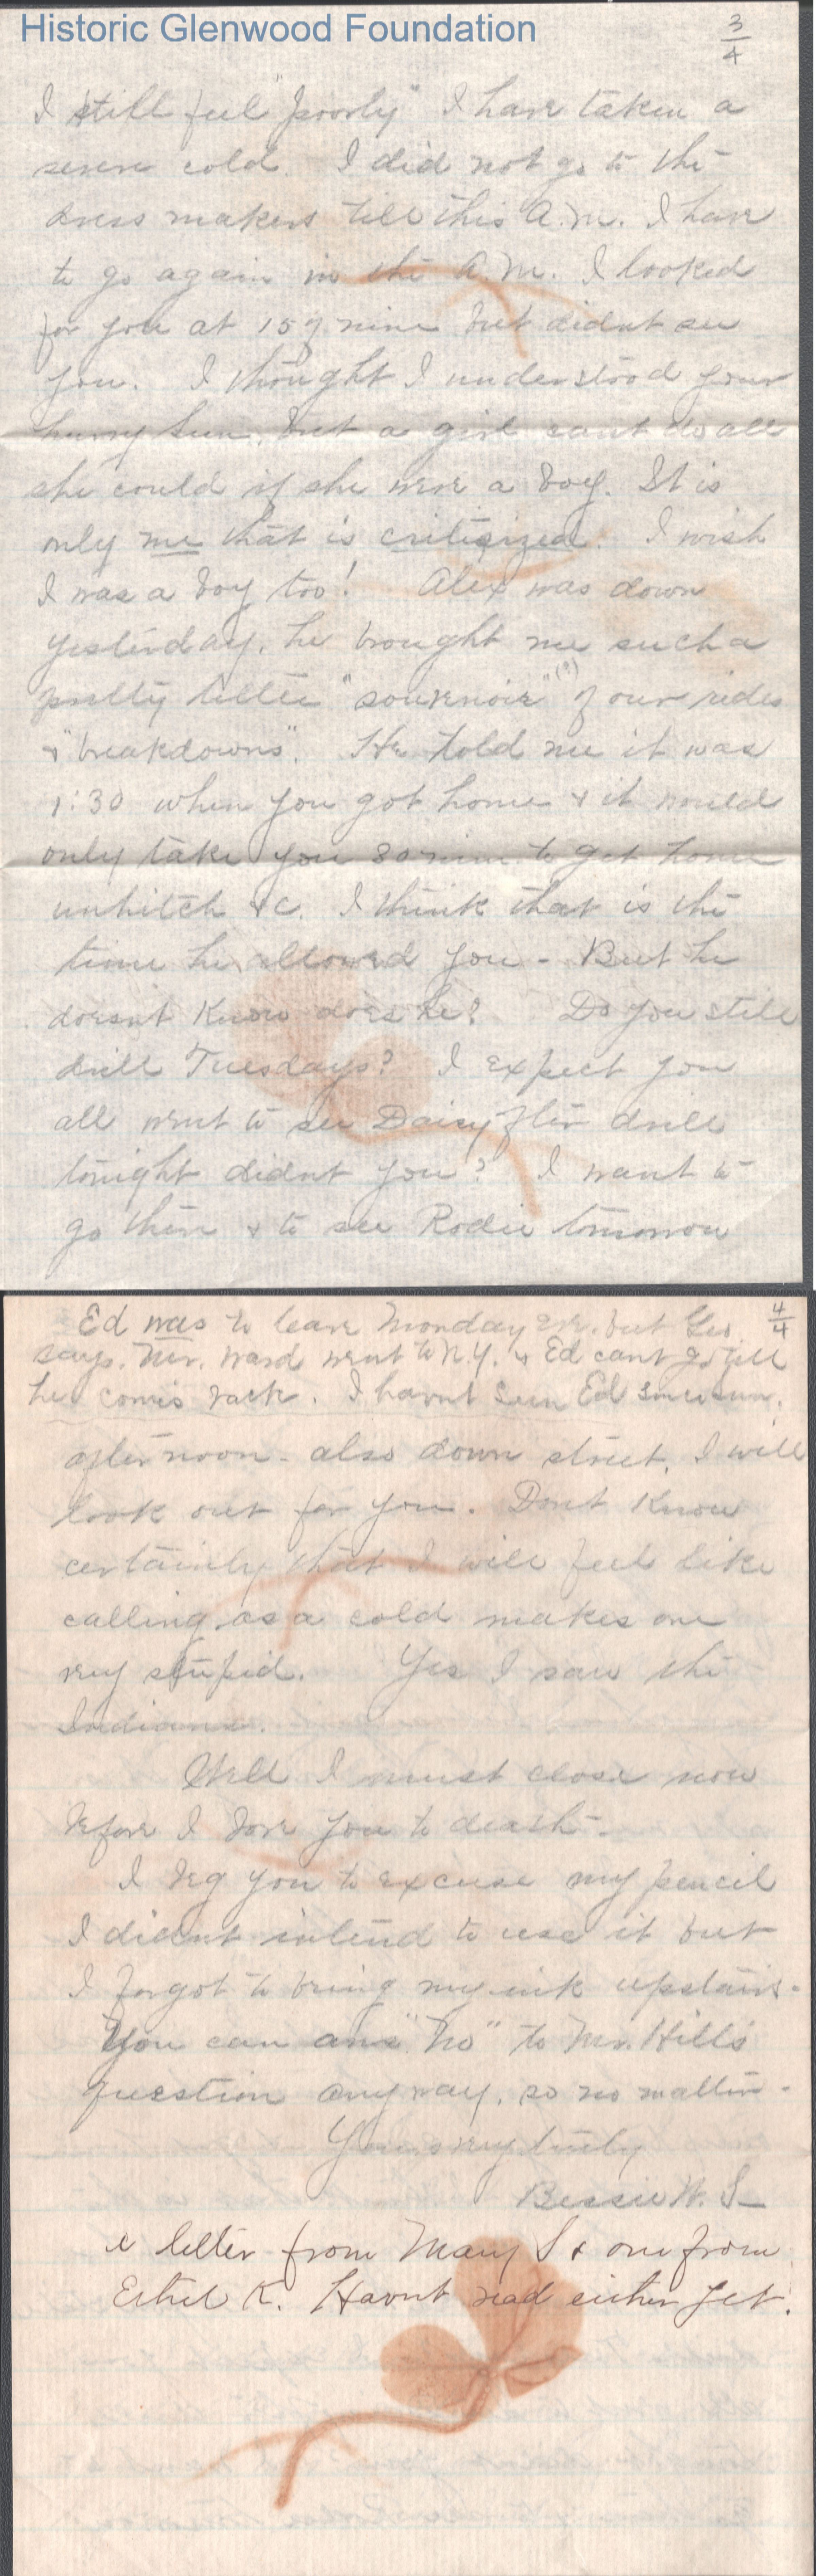 Historic Glenwood Foundation
3/4
I still feel "poorly" I have taken a
severe cold. I did not go to the
dress makers till this A.M. I have
to go again in the A.M. I looked
for you at 15 of nine but didnt see
you. I thought I understood your
hurry Sun. but a girl cant do all
she could if she were a boy. It is
only me that is critisized. I wish
I was a boy too! Alex was down
yesterday, he brought me such a
pretty little "souvenoir" (?) of our rides
& "breakdowns". He told me it was
1:30 when you got home & it would
only take you 30 min to get home
unhitch &c. I think that is the
time he allowed you - But he
doesnt know does he? Do you still
drill Tuesdays? I expect you
all went to see Daisy after drill
tonight didnt you? I want to
go there & to see Rodie tomorrow
4/4
Ed was to leave Monday eve. but Geo.
says. Mr. Ward went to N.Y. & Ed cant go till
he comes back. I havnt seen Ed since sun.
afternoon - also down street. I will
look out for you. Dont know
certainly that I will feel like
calling as a cold makes one
very stupid. Yes I saw the
Indians.
Well I must close now
before I bore you to death -
I beg you to excuse my pencil
I didnt intend to use it but
I forgot to bring my ink upstairs -
You can ans "No" to Mr. Hills
question anyway, so no matter -
Yours very truly
Bessie W. S-
letter from Mary S & one from
Ethel K. Havnt read either yet.